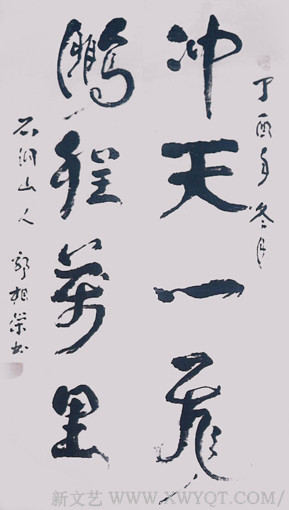 丁酉年冬月
冲天一飛
鵬程萬里
山人 郭相荣书
新文艺 WWW.XWYQT.COM